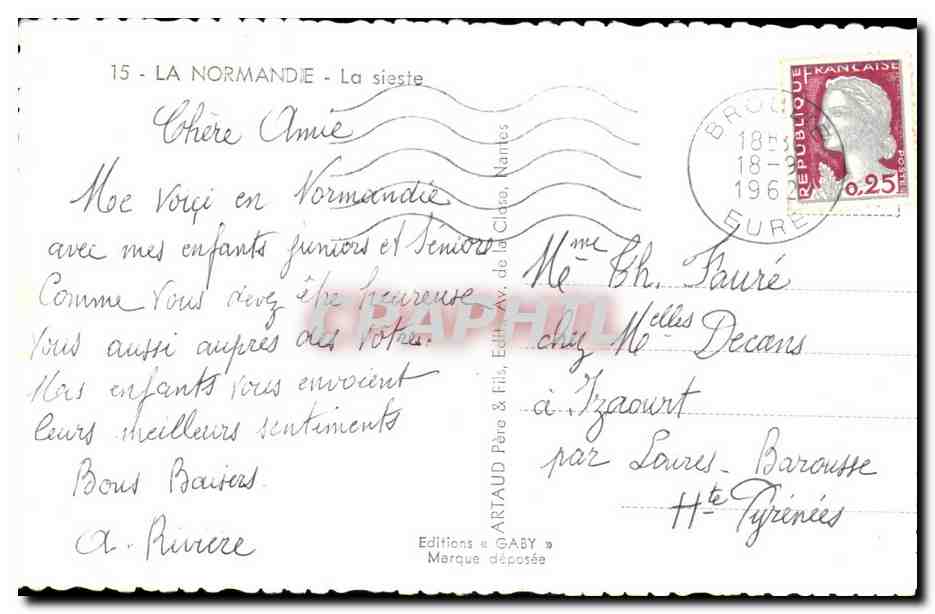 15 - LA NORMANDIE - La sieste
Chère Amie
Me voiçi en Normandie
avec mes enfants juniors et Séniors
Comme vous devez être heureuse
vous aussi auprès des vôtres.
Mes enfants vous envoient
leurs meilleurs sentiments
Bons Baisers.
A. Rivière
Editions « GABY »
Marque déposée
ARTAUD Père & Fils, Edit. Av. de la Close, Nantes
RÉPUBLIQUE FRANÇAISE
POSTES
0,25
18-9
1962
EURE
Mme Th. Fauré
chez Melles Decæns
à Izaourt
par Loures-Barousse
Hte Pyrénées
CPAPHIL